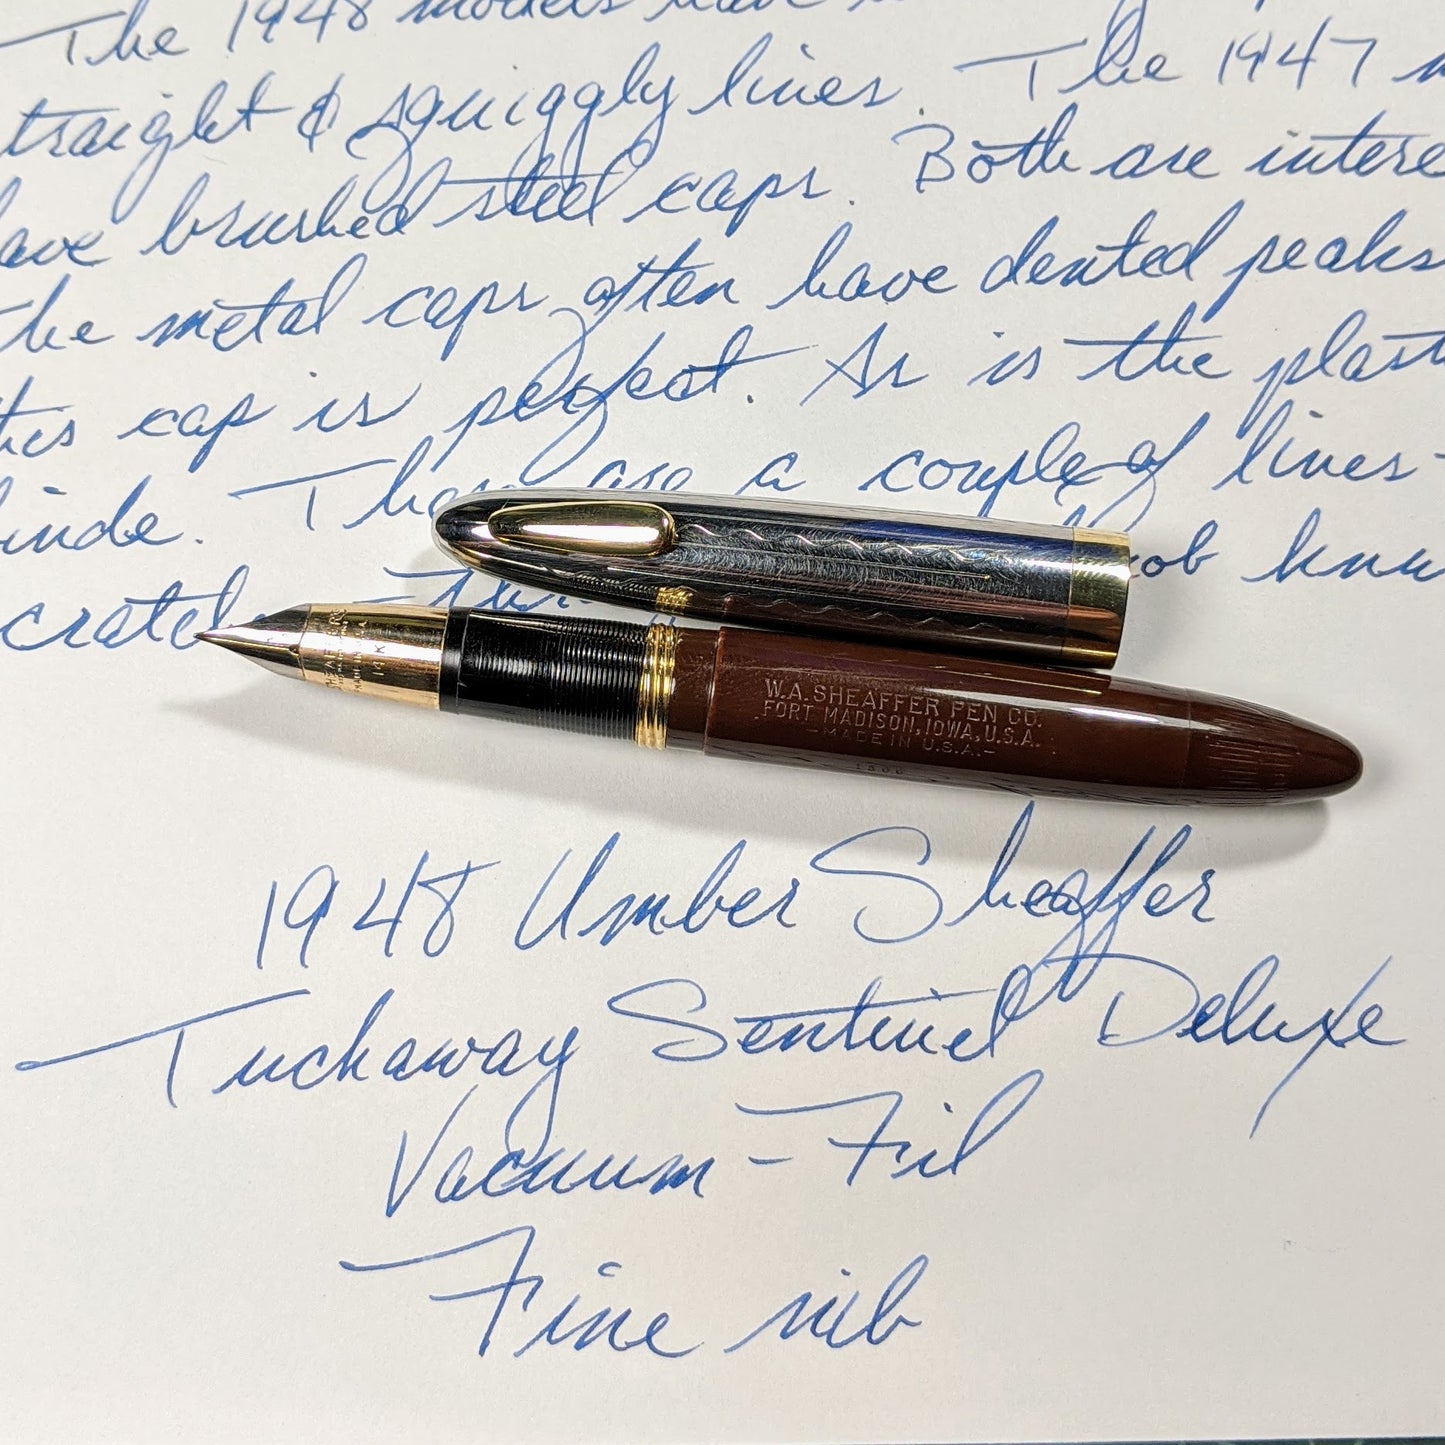 The 1948 models have
straight & squiggly lines. The 1947
have brushed steel caps. Both are intere
the metal caps often have dented peaks
this cap is perfect. As is the plast
inde. There are a couple of lines-
ob know
SHEAFFER'S
MADE IN U.S.A.
14K
W.A. SHEAFFER PEN CO.
FORT MADISON, IOWA, U.S.A.
-MADE IN U.S.A.-
1500
1948 Umber Sheaffer
Tuckaway Sentinel Deluxe
Vacuum-Fil
Fine nib